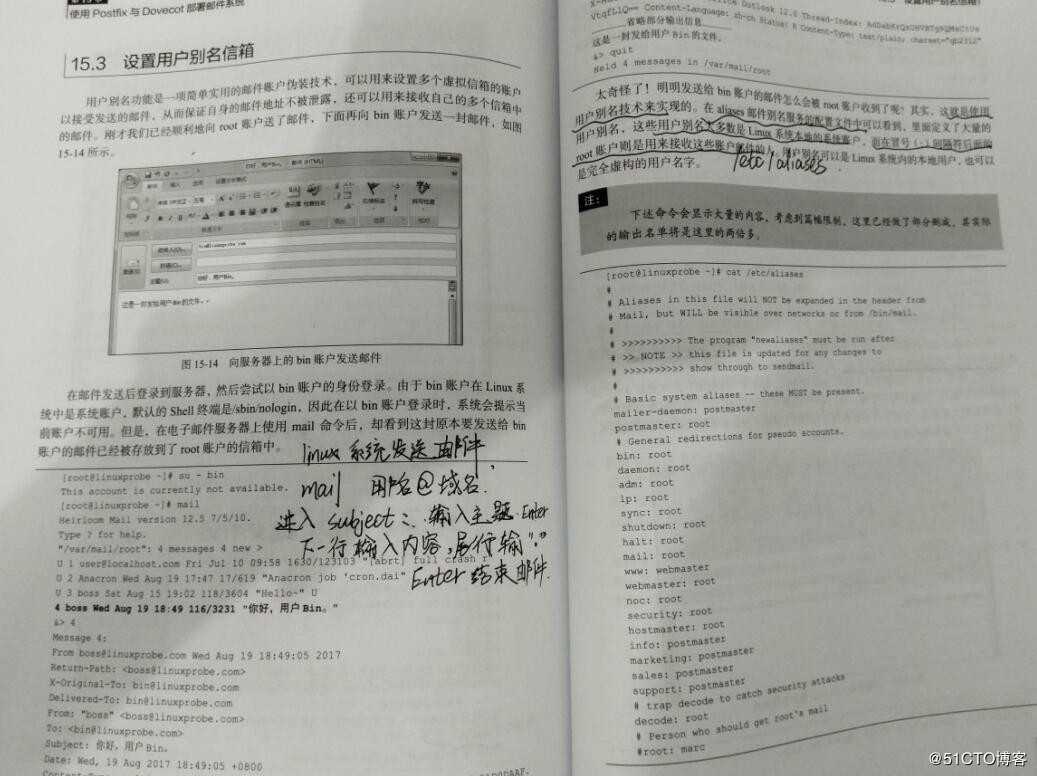 使用 Postfix 与 Dovecot 部署邮件系统
15.3 设置用户别名信箱
用户别名功能是一项简单实用的邮件账户伪装技术，可以用来设置多个虚拟信箱的账户
以接受发送的邮件，从而保证自身的邮件地址不被泄露，还可以用来接收自己的多个信箱中
的邮件。刚才我们已经顺利地向 root 账户送了邮件，下面再向 bin 账户发送一封邮件，如图
15-14 所示。
bin@linuxprobe.com
你好，用户Bin。
这是一封发给用户Bin的文件。
图 15-14 向服务器上的 bin 账户发送邮件
在邮件发送后登录到服务器，然后尝试以 bin 账户的身份登录。由于 bin 账户在 Linux 系
统中是系统账户，默认的 Shell 终端是/sbin/nologin，因此在以 bin 账户登录时，系统会提示当
前账户不可用。但是，在电子邮件服务器上使用 mail 命令后，却看到这封原本要发送给 bin
账户的邮件已经被存放到了 root 账户的信箱中。
linux 系统发送邮件
mail 用户名@域名
进入 subject: 输入主题 Enter
下一行输入内容，尾行输"."
Enter 结束邮件
[root@linuxprobe ~]# su - bin
This account is currently not available.
[root@linuxprobe ~]# mail
Heirloom Mail version 12.5 7/5/10.
Type ? for help.
"/var/mail/root": 4 messages 4 new >
U 1 user@localhost.com Fri Jul 10 09:58 1630/123103 "[abrt] full crash r"
U 2 Anacron Wed Aug 19 17:47 17/619 "Anacron job 'cron.dai"
U 3 boss Sat Aug 15 19:02 118/3604 "Hello~" U
4 boss Wed Aug 19 18:49 116/3231 "你好，用户Bin。"
&> 4
Message 4:
From boss@linuxprobe.com Wed Aug 19 18:49:05 2017
Return-Path: <boss@linuxprobe.com>
X-Original-To: bin@linuxprobe.com
Delivered-To: bin@linuxprobe.com
From: "boss" <boss@linuxprobe.com>
To: <bin@linuxprobe.com>
Subject: 你好，用户 Bin。
Date: Wed, 19 Aug 2017 18:49:05 +0800
Office Outlook 12.0 Thread-Index:
Content-Language: zh-cn Status: R Content-Type: text/plain; charset="gb2312"
省略部分输出信息
这是一封发给用户 Bin 的文件。
&> quit
Held 4 messages in /var/mail/root
太奇怪了！明明发送给 bin 账户的邮件怎么会被 root 账户收到了呢？其实，这就是使用
用户别名技术来实现的。在 aliases 邮件别名服务的配置文件中可以看到，里面定义了大量的
用户别名，这些用户别名大多数是 Linux 系统本地的系统账户，而在冒号（:）间隔符后面的
root 账户则是用来接收这些账户邮件的人。用户别名可以是 Linux 系统内的本地用户，也可以
是完全虚构的用户名字。
/etc/aliases
注:
下述命令会显示大量的内容，考虑到篇幅限制，这里已经做了部分删减，其实际
的输出名单将是这里的两倍多。
[root@linuxprobe ~]# cat /etc/aliases
#
# Aliases in this file will NOT be expanded in the header from
# Mail, but WILL be visible over networks or from /bin/mail.
#
# >>>>>>>>>> The program "newaliases" must be run after
# >> NOTE >> this file is updated for any changes to
# >>>>>>>>>> show through to sendmail.
#
# Basic system aliases -- these MUST be present.
mailer-daemon: postmaster
postmaster: root
# General redirections for pseudo accounts.
bin: root
daemon: root
adm: root
lp: root
sync: root
shutdown: root
halt: root
mail: root
www: webmaster
webmaster: root
noc: root
security: root
hostmaster: root
info: postmaster
marketing: postmaster
sales: postmaster
support: postmaster
# trap decode to catch security attacks
decode: root
# Person who should get root's mail
#root: marc
@51CTO博客